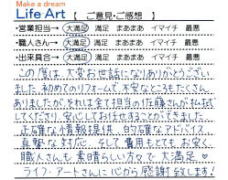 Make a dream
Life Art 【ご意見・ご感想】
・営業担当→ 大満足 満足 まあまあ イマイチ 最悪
・職人さん→ 大満足 満足 まあまあ イマイチ 最悪
・出来具合→ 大満足 満足 まあまあ イマイチ 最悪
この度は、大変お世話になりありがとうござい
ました。初めてのリフォームで、不安なところもたくさん
ありましたが、それは全て担当の佐藤さんが払拭
してくださり、安心してお任せすることができました。
正確な情報提供、的確なアドバイス、
真摯な対応、そして費用もとても、お安く、
職人さんも素晴らしい方々で大満足♡
ライフ・アートさんに心から感謝致します!